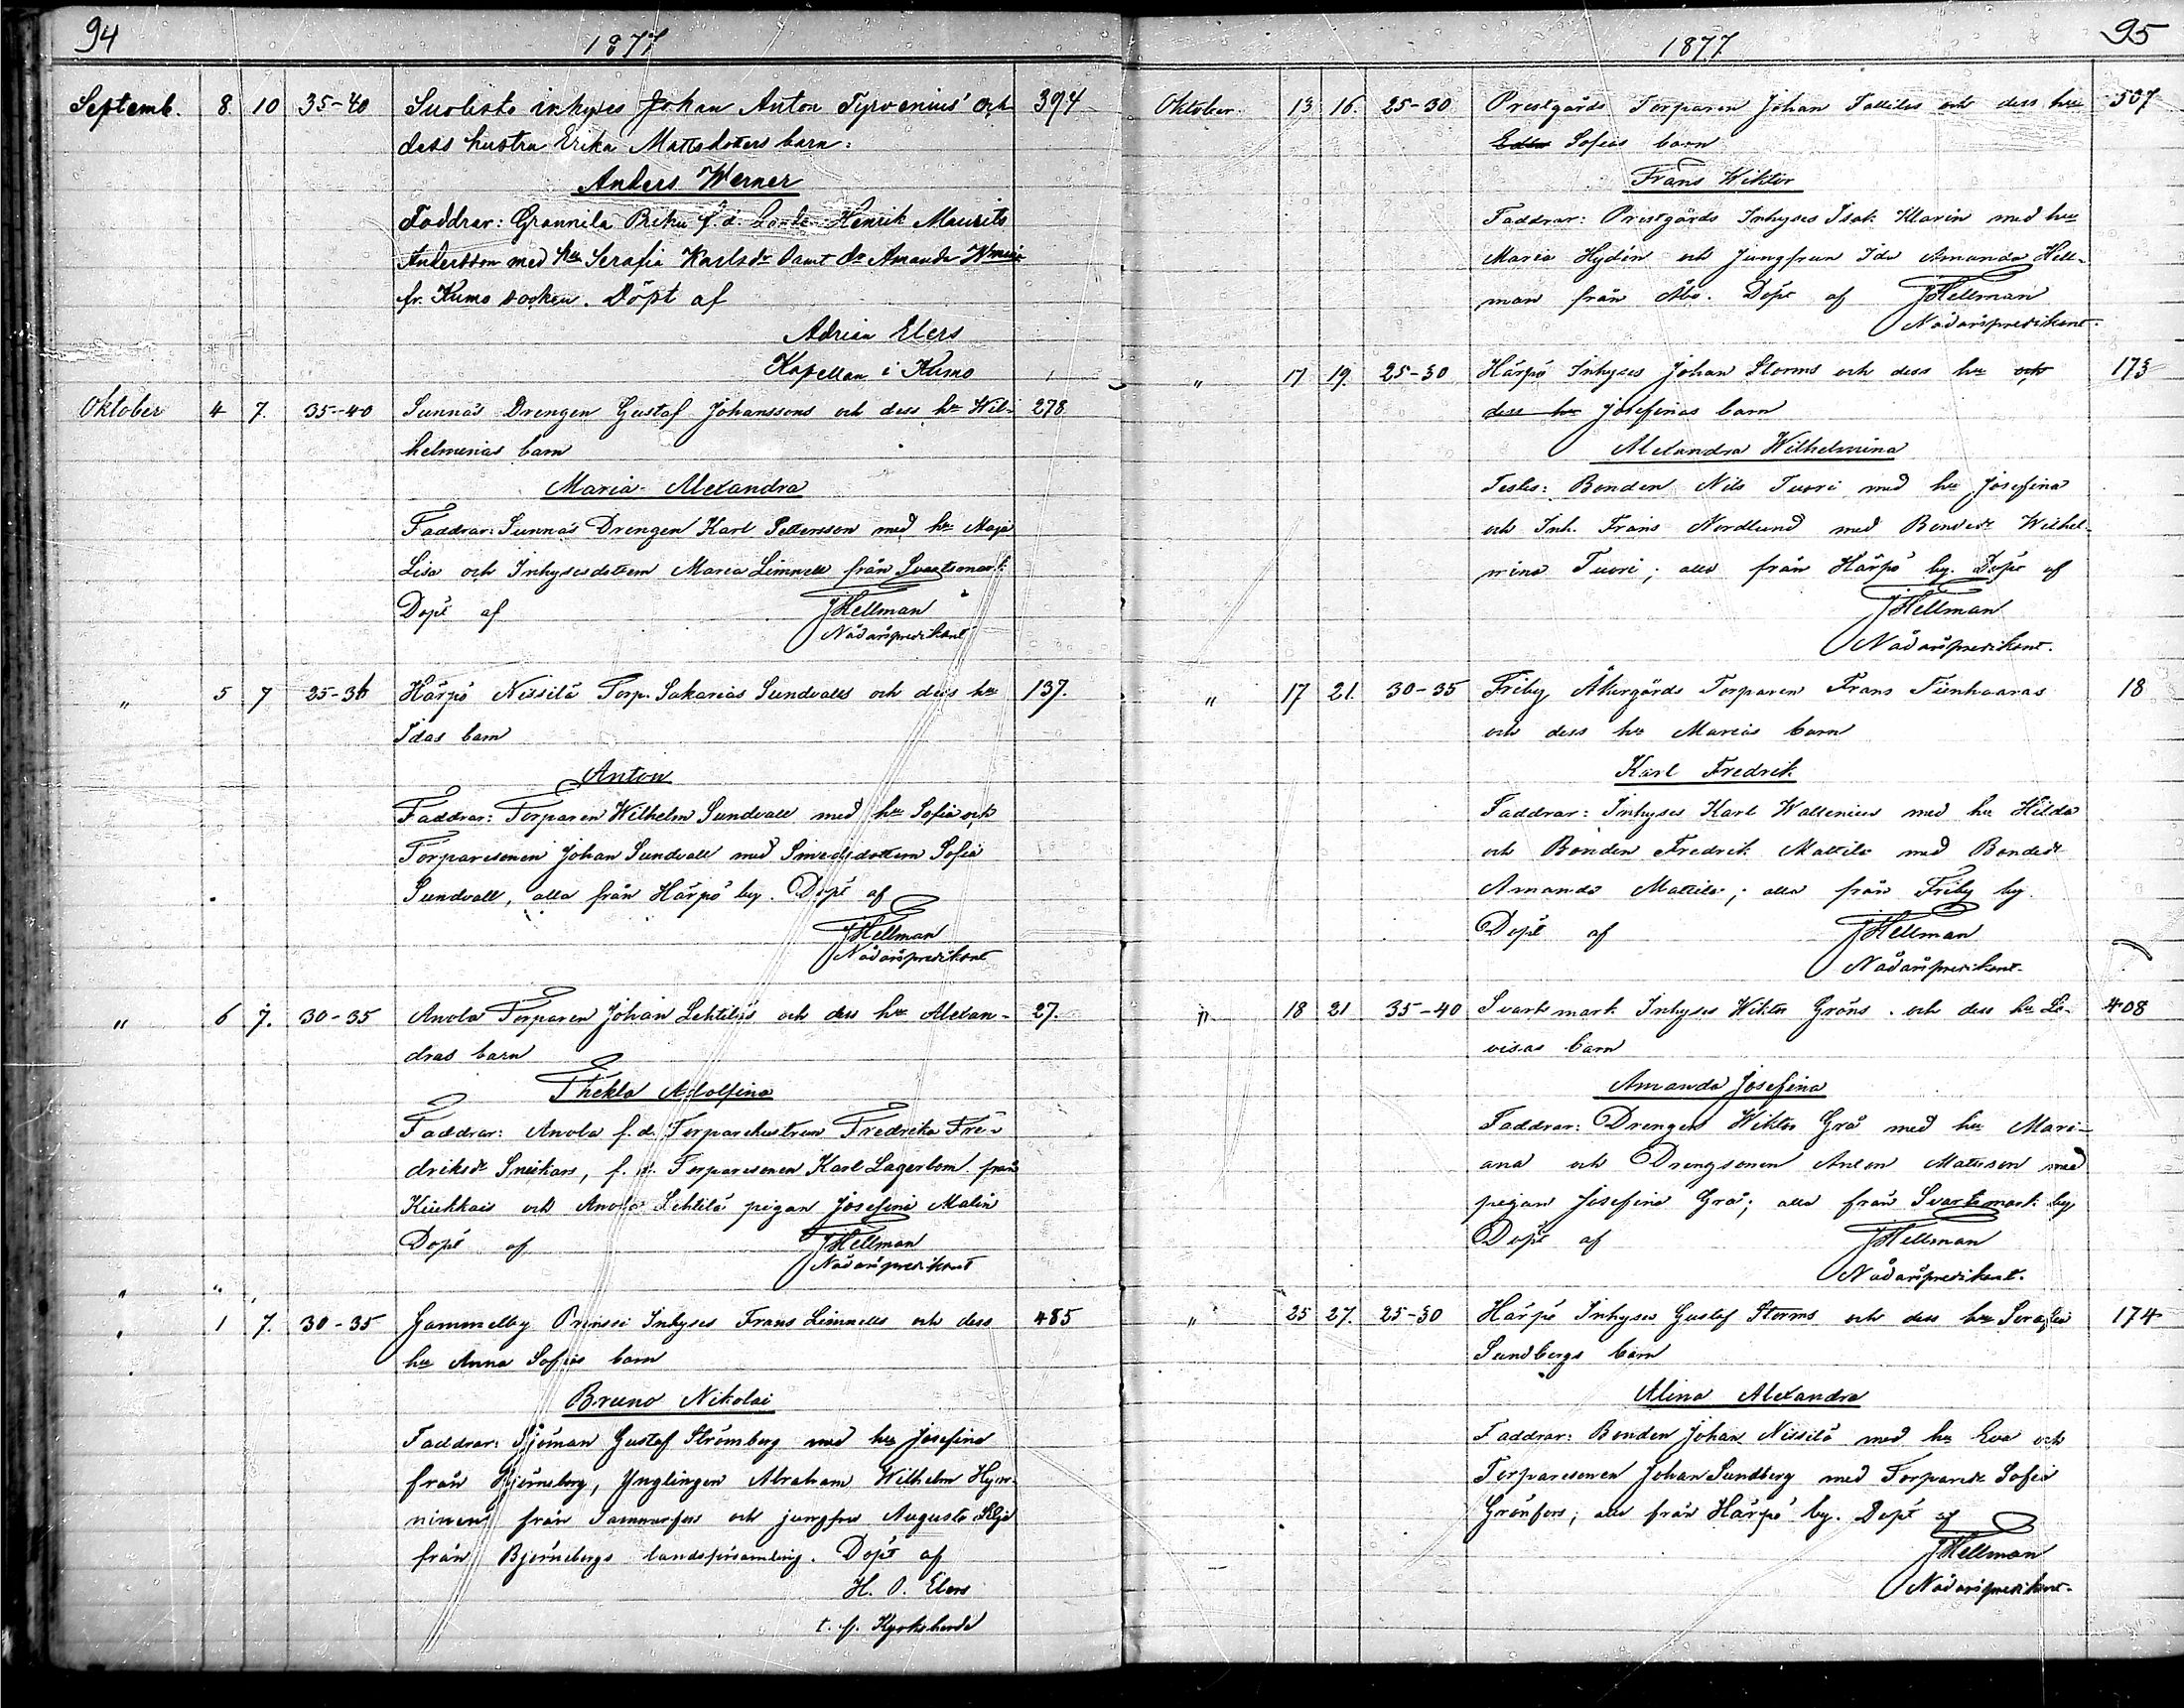 94
1877
Septemb. 8. 10 35-40 Suolisto inhyses Johan Anton Tyrvenius' och 394
dess hustru Erika Mattsdotters barn:
Anders Werner
Faddrar: Grannila f.d. Henrik Maurits
Andersson med hu Serafia Karlsdr samt dr Amanda
fr. Kumo socken. Döpt af
Adrian Elers
Kapellan i Kumo
Oktober 4 7. 35-40 Sunnäs Drengen Gustaf Johanssons och dess hu Wil- 278
helminas barn
Maria Alexandra
Faddrar: Sunnäs Drengen Karl Pettersson med hu Maja
Lisa och Inhysesdottern Maria Limnell från Svartsmark
Döpt af JHellman
Nådårspredikant
" 5 7 25-30 Härpö Nissilä Torp. Sakarias Sundvalls och dess hu 137.
Idas barn
Anton
Faddrar: Torparen Wilhelm Sundvall med hu Sofia och
Torparesonen Johan Sundvall med Smedsdottern Sofia
Sundvall, alla från Härpö by. Döpt af
JHellman
Nådårspredikant
" 6 7. 30-35 Anola Torparen Johan Lehtiläs och dess hu Alexan- 27.
dras barn
Thekla Adolfina
Faddrar: Anola f.d. Torparehustrun Fredrika Fre-
driksdr Snickars, f.d. Torparesonen Karl Lagerbom från
Kiukkais och Anola Lehtilä pigan Josefina Malin
Döpt af JHellman
Nådårspredikant
" 1 7. 30-35 Gammelby Prinssi Inhyses Frans Limnells och dess 485
hu Anna Sofias barn
Bruno Nikolai
Faddrar: Sjöman Gustaf Strömberg med hu Josefina
från Björneborg, Ynglingen Abraham Wilhelm Hyn-
ninen från Tammerfors och jungfru Augusta Silja
från Björneborgs landsförsamling. Döpt af
H. O. Elers
t. f. Kyrkoherde
1877.
95
Oktober 13 16. 25-30 Prestgårds Torparen Johan Tallilas och dess hu 507
Edla Sofias barn
Frans Wiktor
Faddrar: Prestgårds Inhyses Isak Klarin med hu
Maria Hydén och Jungfrun Ida Amanda Hell-
man från Åbo. Döpt af JHellman
Nådårspredikant.
" 17 19. 25-30 Härpö Inhyses Johan Storms och dess hu och 173
dess hu Josefinas barn
Alexandra Wilhelmina
Testes: Bonden Nils Tuori med hu Josefina
och Inh. Frans Nordlund med Bondedr Wilhel-
mina Tuori; alla från Härpö by. Döpt af
JHellman
Nådårspredikant.
" 17 21. 30-35 Friby Åkergårds Torparen Frans Tienhaaras 18
och dess hu Marias barn
Karl Fredrik
Faddrar: Inhyses Karl Wallenius med hu Hilda
och Bonden Fredrik Mattila med Bondedr
Amanda Mattila; alla från Friby by.
Döpt af JHellman
Nådårspredikant.
" 18 21 35-40 Svartsmark Inhyses Wiktor Gröns och dess hu Lo- 408
visas barn
Amanda Josefina
Faddrar: Drengen Wiktor Grå med hu Mari-
ana och Drengsonen Anton Matsson med
pigan Josefina Grå; alla från Svartsmark by
Döpt af JHellman
Nådårspredikant.
" 25 27. 25-30 Härpö Inhyses Gustaf Storms och dess hu Serafia 174
Sundbergs barn
Alina Alexandra
Faddrar: Bonden Johan Nissilä med hu Eva och
Torparesonen Johan Sundberg med Torparedr Sofia
Grönfors; alla från Härpö by. Döpt af
JHellman
Nådårspredikant.